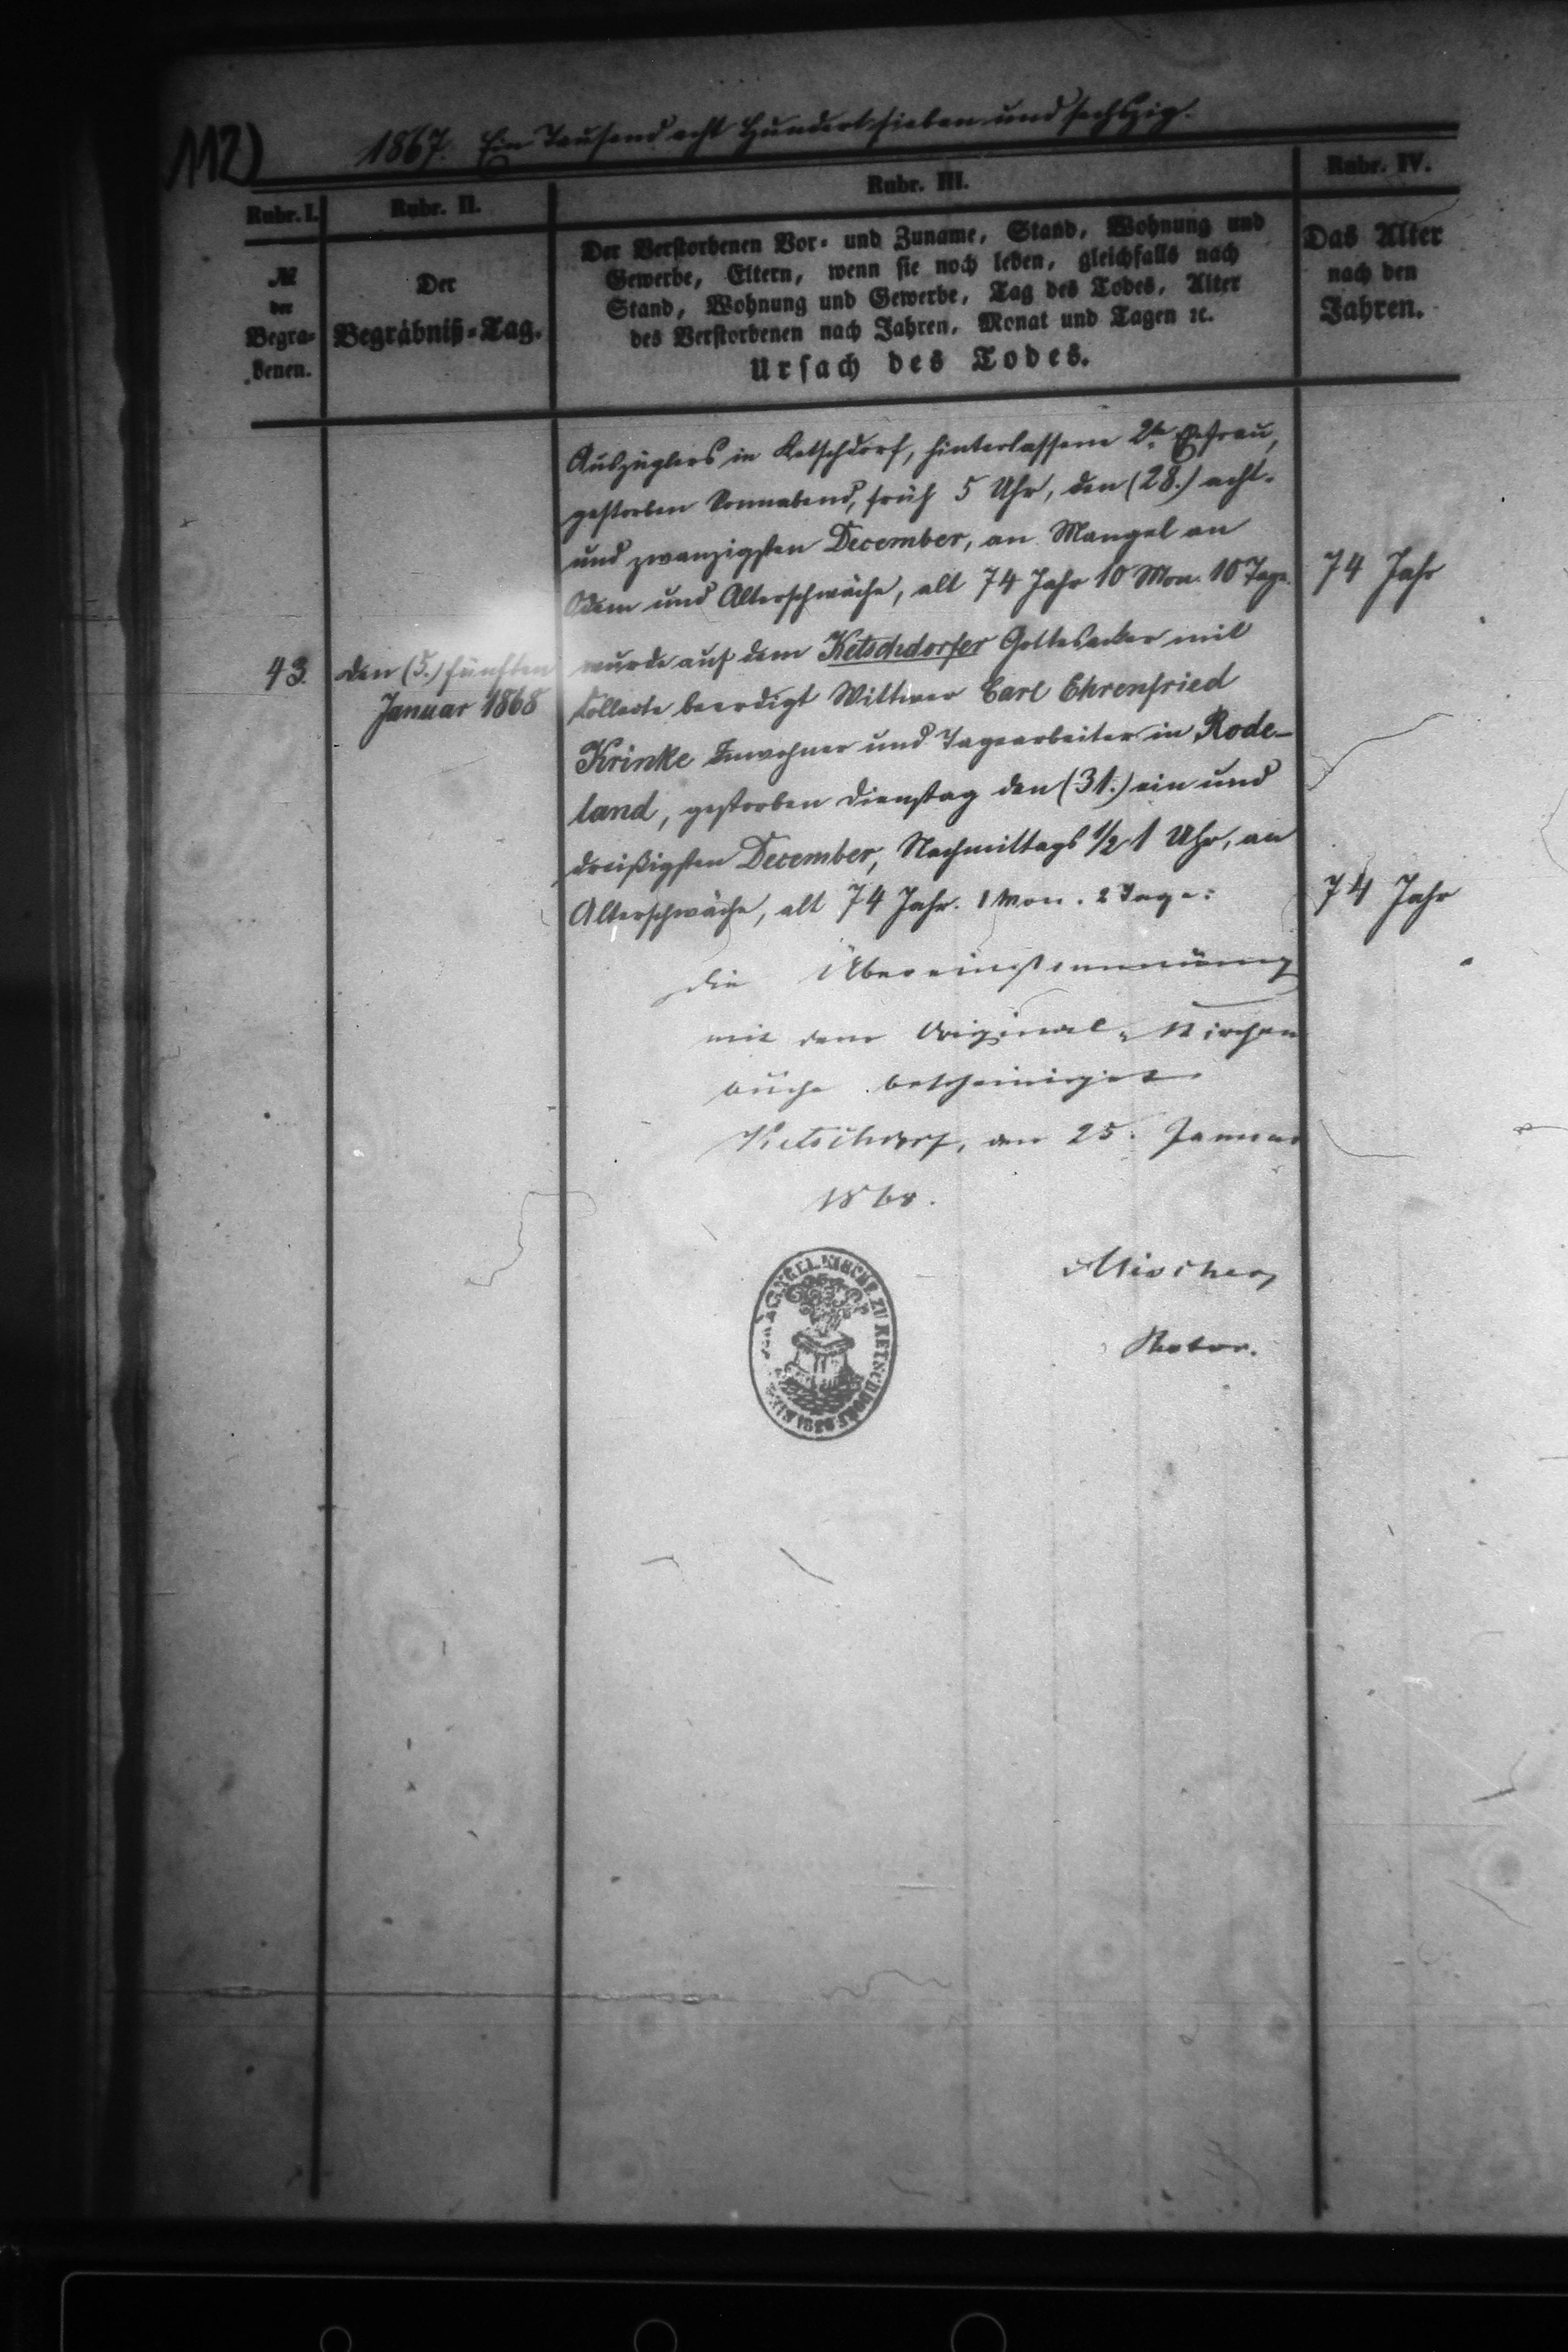 112)
1867. Ein Tausend acht Hundert sieben und sechszig.
Rubr. I.
Rubr. II.
Rubr. III.
Rubr. IV.
№
der
Begra-
benen.
Der
Begräbniß-Tag.
Der Verstorbenen Vor- und Zuname, Stand, Wohnung und
Gewerbe, Eltern, wenn sie noch leben, gleichfalls nach
Stand, Wohnung und Gewerbe, Tag des Todes, Alter
des Verstorbenen nach Jahren, Monat und Tagen ꝛc.
Ursach des Todes.
Das Alter
nach den
Jahren.
Auszüglers in Ketschdorf, hinterlassene 2te Ehefrau,
gestorben Sonnabend, früh 5 Uhr, den (28.) acht-
und zwanzigsten December, an Mangel an
Odem und Alterschwäche, alt 74 Jahr 10 Mon. 10 Tage.
74 Jahr
43.
den (5.) fünften
Januar 1868
wurde auf dem Ketschdorfer Gottesacker mit
Collecte beerdigt Wittwer Carl Ehrenfried
Krinke Inwohner und Tagearbeiter in Rode-
land, gestorben Dienstag den (31.) ein und
dreißigsten December, Nachmittags 1/2 1 Uhr, an
Alterschwäche, alt 74 Jahr. 1 Mon. 2 Tage:
74 Jahr
Die Übereinstimmung
mit dem Original-Kirchen
buche bescheiniget
Ketschdorf, den 25. Januar
1868.
Pastor.
KIRCHE ZU KETSCHDORF